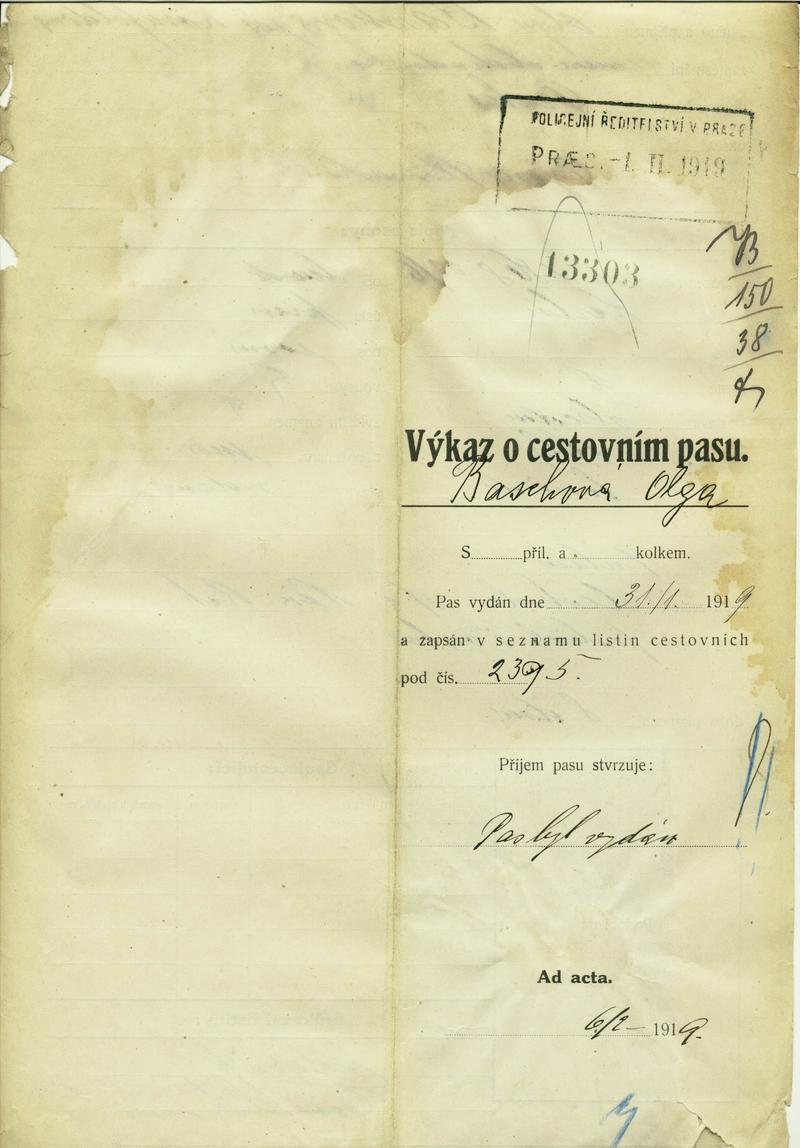 POLICEJNÍ ŘEDITELSTVÍ V PRAZE
PRÆS. -1. II. 1919
13303
B
150
38
Výkaz o cestovním pasu.
Baschová Olga
S..........příl. a .......... kolkem.
Pas vydán dne 31./1. 1919
a zapsán v seznamu listin cestovních
pod čís. 2395.
Příjem pasu stvrzuje:
Pas byl vydán
Ad acta.
6/2 – 1919.